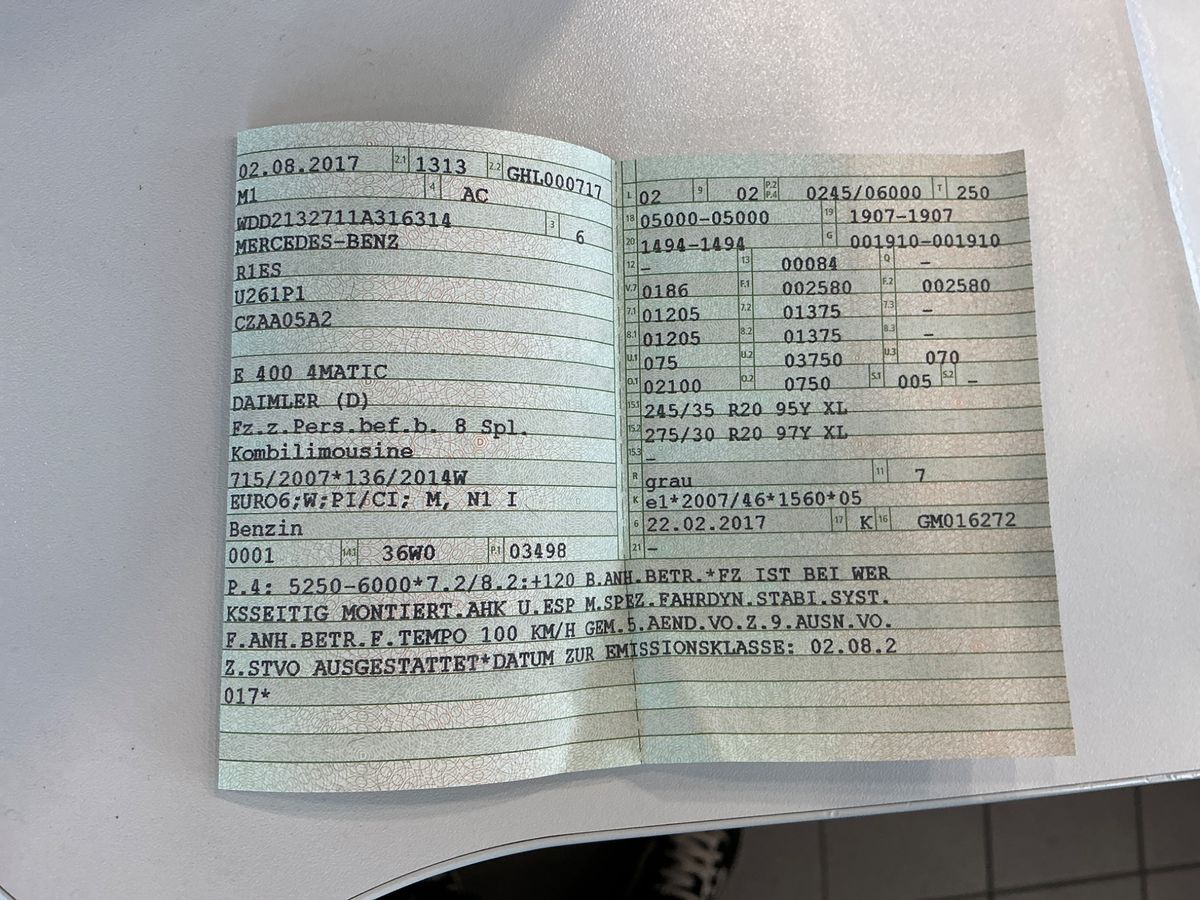 02.08.2017 2.1 1313 2.2 GHL000717
M1 4 AC
WDD2132711A316314 3 6
MERCEDES-BENZ
R1ES
U261P1
CZAA05A2
E 400 4MATIC
DAIMLER (D)
Fz.z.Pers.bef.b. 8 Spl.
Kombilimousine
715/2007*136/2014W
EURO6;W;PI/CI; M, N1 I
Benzin
0001 14.1 36W0 P.1 03498
L 02 9 02 P.2 P.4 0245/06000 T 250
18 05000-05000 19 1907-1907
20 1494-1494 G 001910-001910
12 – 13 00084 Q –
V.7 0186 F.1 002580 F.2 002580
7.1 01205 7.2 01375 7.3 –
8.1 01205 8.2 01375 8.3 –
U.1 075 U.2 03750 U.3 070
O.1 02100 O.2 0750 S.1 005 S.2 –
15.1 245/35 R20 95Y XL
15.2 275/30 R20 97Y XL
15.3 –
R grau 11 7
K e1*2007/46*1560*05
6 22.02.2017 17 K 16 GM016272
21 –
P.4: 5250-6000*7.2/8.2:+120 B.ANH.BETR.*FZ IST BEI WER
KSSEITIG MONTIERT.AHK U.ESP M.SPEZ.FAHRDYN.STABI.SYST.
F.ANH.BETR.F.TEMPO 100 KM/H GEM.5.AEND.VO.Z.9.AUSN.VO.
Z.STVO AUSGESTATTET*DATUM ZUR EMISSIONSKLASSE: 02.08.2
017*